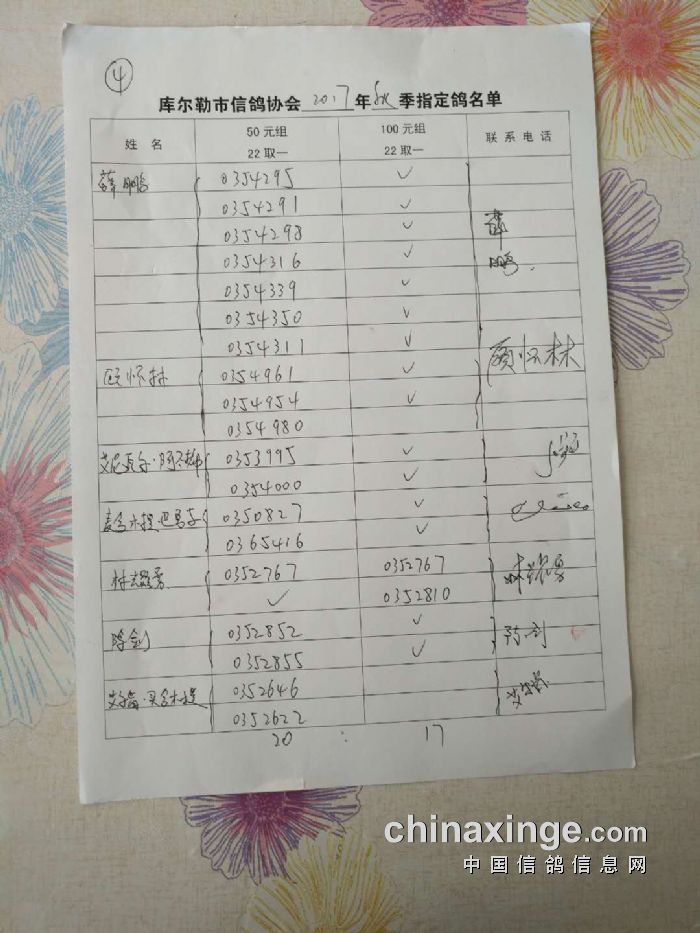 ④
库尔勒市信鸽协会 2017 年 秋 季指定鸽名单
姓 名 50元组 22取一 100元组 22取一 联系电话
薛鹏 0354295 ✓
0354291 ✓
0354298 ✓ 薛
0354316 ✓ 鹏
0354339 ✓
0354350 ✓
0354311 ✓
0354961 ✓ 顾怀林
0354954 ✓
0354980
0353995 ✓
0354000 ✓
0350827 ✓
0365416 ✓
0352767 0352767
✓ 0352810
陈剑 0352852 ✓ 陈剑
0352855 ✓
0352646
0352622
20 : 17
chinaxinge.com
中国信鸽信息网